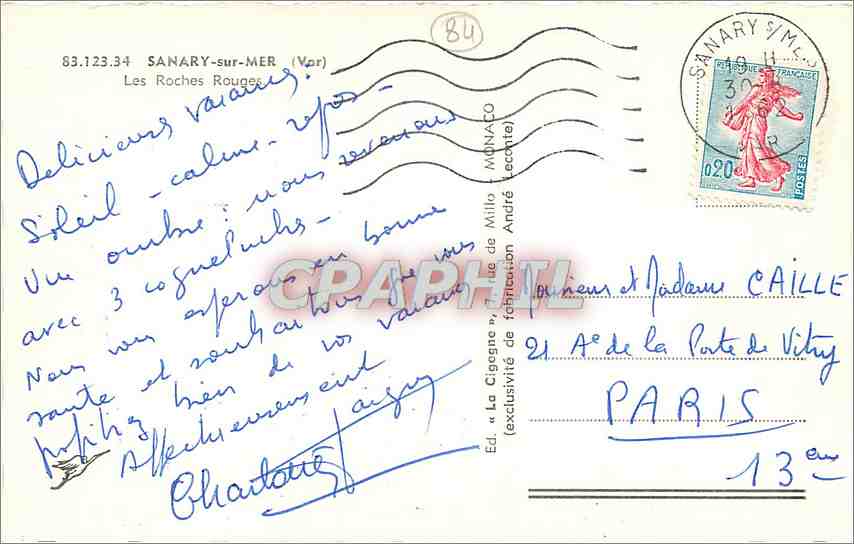 84
83.123.34 SANARY-sur-MER (Var)
Les Roches Rouges
Delicieuses vacances :
Soleil - calme - repos -
Une ombre : nous revenons
avec 3 coqueluches -
Nous vous espérons en bonne
santé et souhaitons que vous
profitez bien de vos vacances
Affectueusement
Charlotte
Ed. « La Cigogne », 7, rue de Millo - MONACO
(exclusivité de fabrication André Leconte)
CPAPHIL
SANARY S/MER
19 H
30
VAR
REPUBLIQUE FRANÇAISE
0,20
POSTES
Monsieur et Madame CAILLE
21 Ae de la Porte de Vitry
PARIS
13 em